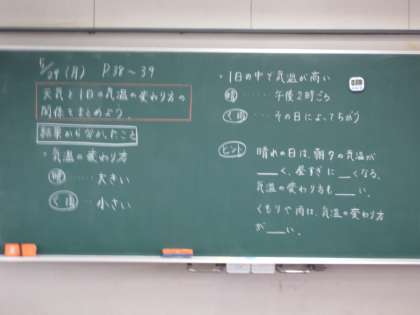 5/29 (月) P.38~39
天気と1日の気温の変わり方の
関係をまとめよう。
結果から分かったこと
・気温の変わり方
晴 ····· 大きい
く・雨 ····· 小さい
・1日の中で気温が高い
晴 ····· 午後2時ごろ
く・雨 ····· その日によってちがう
ヒント 晴れの日は、朝夕の気温が
___く、昼すぎに__くなる。
気温の変わり方も___い。
くもりや雨は、気温の変わり方
が___い。